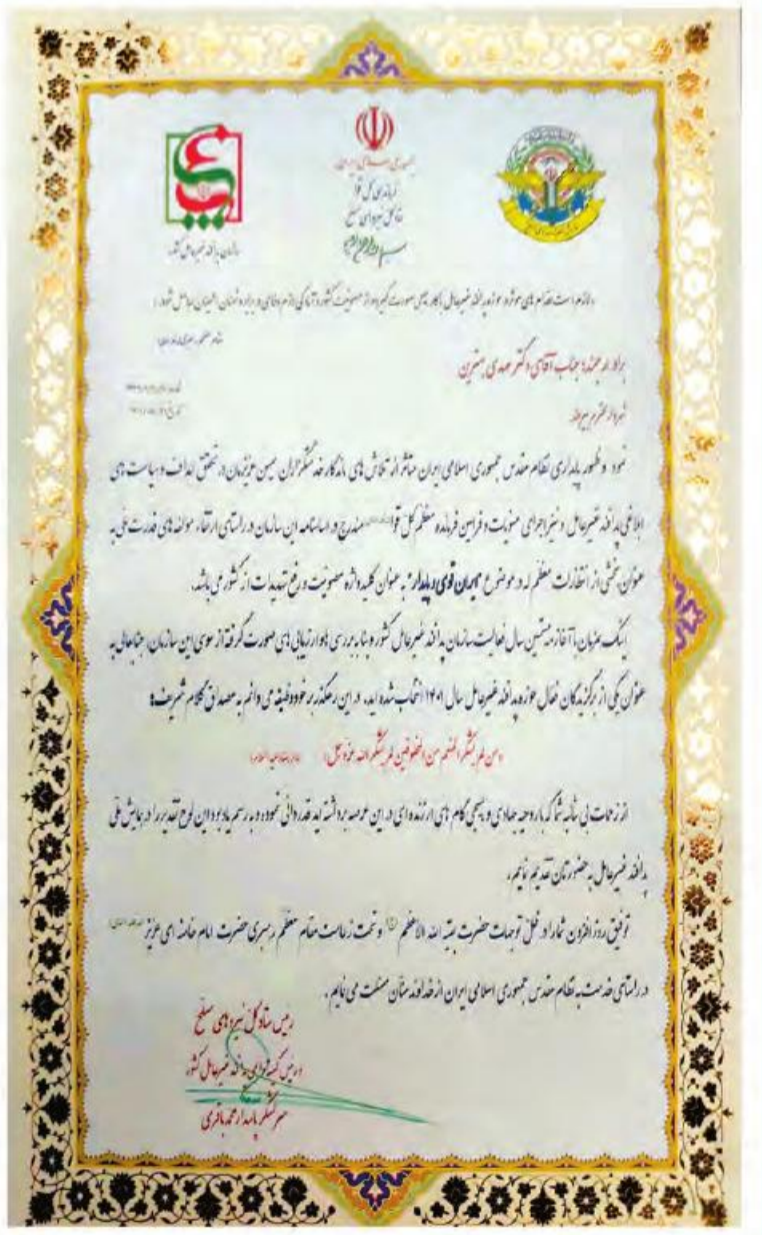 جمهوری اسلامی ایران
فرماندهی کل قوا
ستاد کل نیروهای مسلح
سازمان پدافند غیرعامل کشور
برادر ارجمند؛ جناب آقای دکتر مهدی بهترین
شهردار محترم بیرجند
نمود و ظهور پایداری نظام مقدس جمهوری اسلامی ایران متأثر از تلاش های ماندگار خدمتگزاران میهن عزیزمان در تحقق اهداف و سیاست های
ابلاغی پدافند غیرعامل و نیز اجرای منویات و فرامین فرمانده معظم کل قوا مندرج در اساسنامه این سازمان در راستای ارتقاء مولفه های قدرت ملی به
عنوان بخشی از انتظارات معظم له در موضوع "ایران قوی و پایدار" به عنوان کلید واژه مصونیت و رفع تهدیدات از کشور می باشد.
اینک همزمان با آغاز بیستمین سال فعالیت سازمان پدافند غیرعامل کشور و بنا به بررسی ها و ارزیابی های صورت گرفته از سوی این سازمان، جنابعالی به
عنوان یکی از برگزیدگان فعال حوزه پدافند غیرعامل سال ۱۴۰۱ انتخاب شده اید. در این رهگذر بر خود وظیفه می دانم به مصداق کلام شریف:
«من لم یشکر المنعم من المخلوقین لم یشکر الله عزوجل»
از زحمات بی شائبه شما که با روحیه جهادی و بسیجی گام های ارزنده ای در این عرصه برداشته اید قدردانی نموده و به رسم یادبود این لوح تقدیر را در همایش ملی
پدافند غیرعامل به حضورتان تقدیم نمایم.
توفیق روز افزون شما را در ظل توجهات حضرت بقیة الله الاعظم و تحت زعامت مقام معظم رهبری حضرت امام خامنه ای عزیز
در راستای خدمت به نظام مقدس جمهوری اسلامی ایران از خداوند منان مسئلت می نمایم.
رئیس ستاد کل نیروهای مسلح
و رئیس کمیته دائمی پدافند غیرعامل کشور
سرلشکر پاسدار محمد باقری